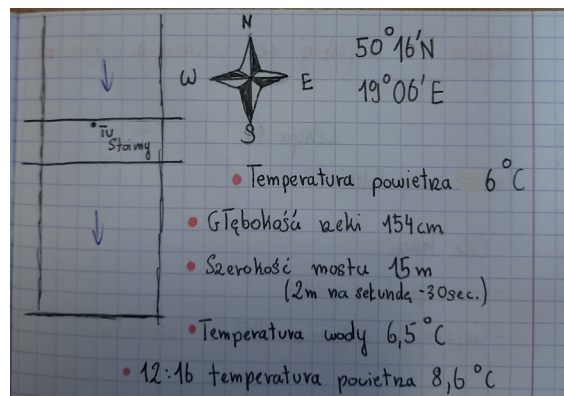 N
W E
S
50°16'N
19°06'E
Tu
Stoimy
• Temperatura powietrza 6°C
• Głębokość rzeki 154cm
• Szerokość mostu 15m
(2m na sekundę -30sec.)
• Temperatura wody 6,5°C
• 12:16 temperatura powietrza 8,6°C